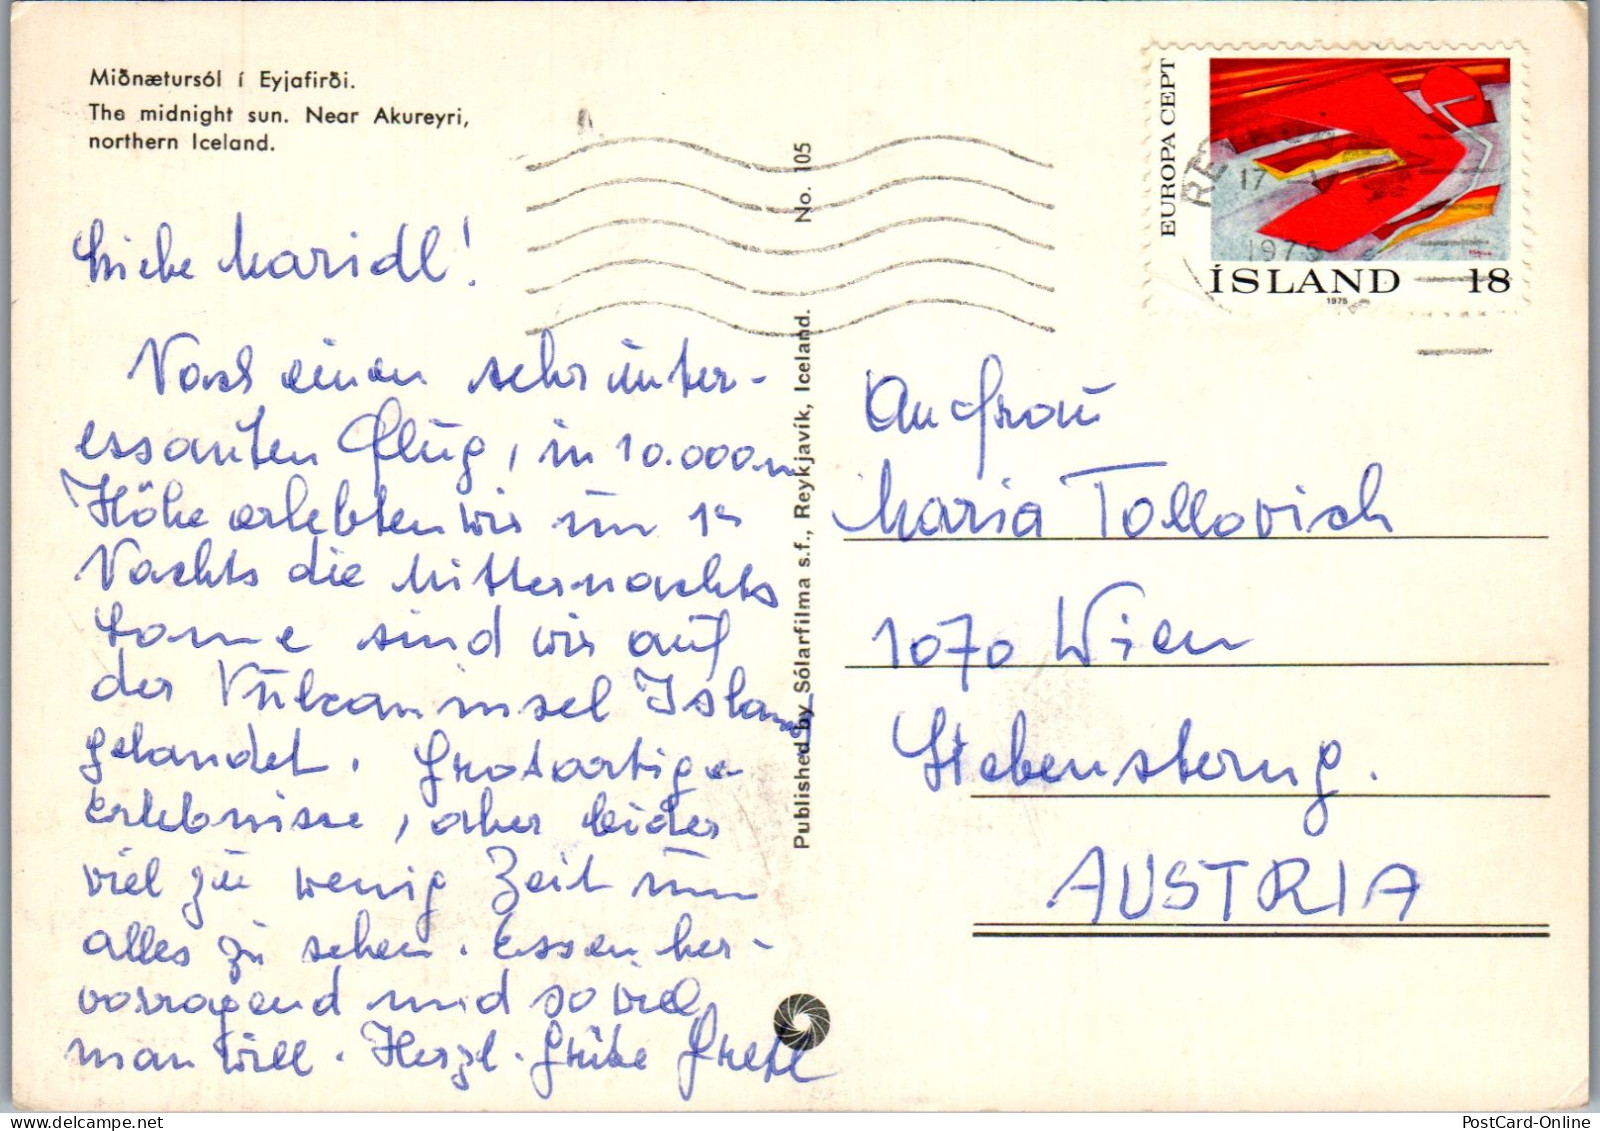 Miðnætursól í Eyjafirði.
The midnight sun. Near Akureyri,
northern Iceland.
Liebe Maridl!
Nach einen sehr inter-
essanten Flug, in 10.000 m
Höhe erlebten wir um 1h
Nachts die Mitternachts
sonne sind wir auf
der Vulkaninsel Island
gelandet. Großartige
Erlebnisse, aber leider
viel zu wenig Zeit um
alles zu sehen. Essen her-
vorragend und so viel
man will. Herzl. Grüße Gretl
Published by Sólarfilma s.f., Reykjavík, Iceland. No. 105
EUROPA CEPT
ÍSLAND 18
1975
17
1975
An Frau
Maria Tollovich
1070 Wien
Siebensterng.
AUSTRIA
PostCard-Online